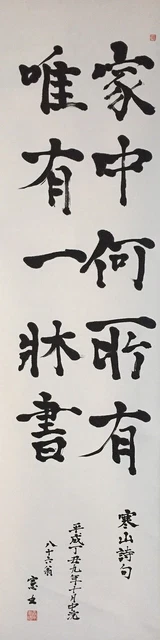 家中何所有
唯有一牀書
寒山詩句
平成丁丑九年十月中浣
八十六翁